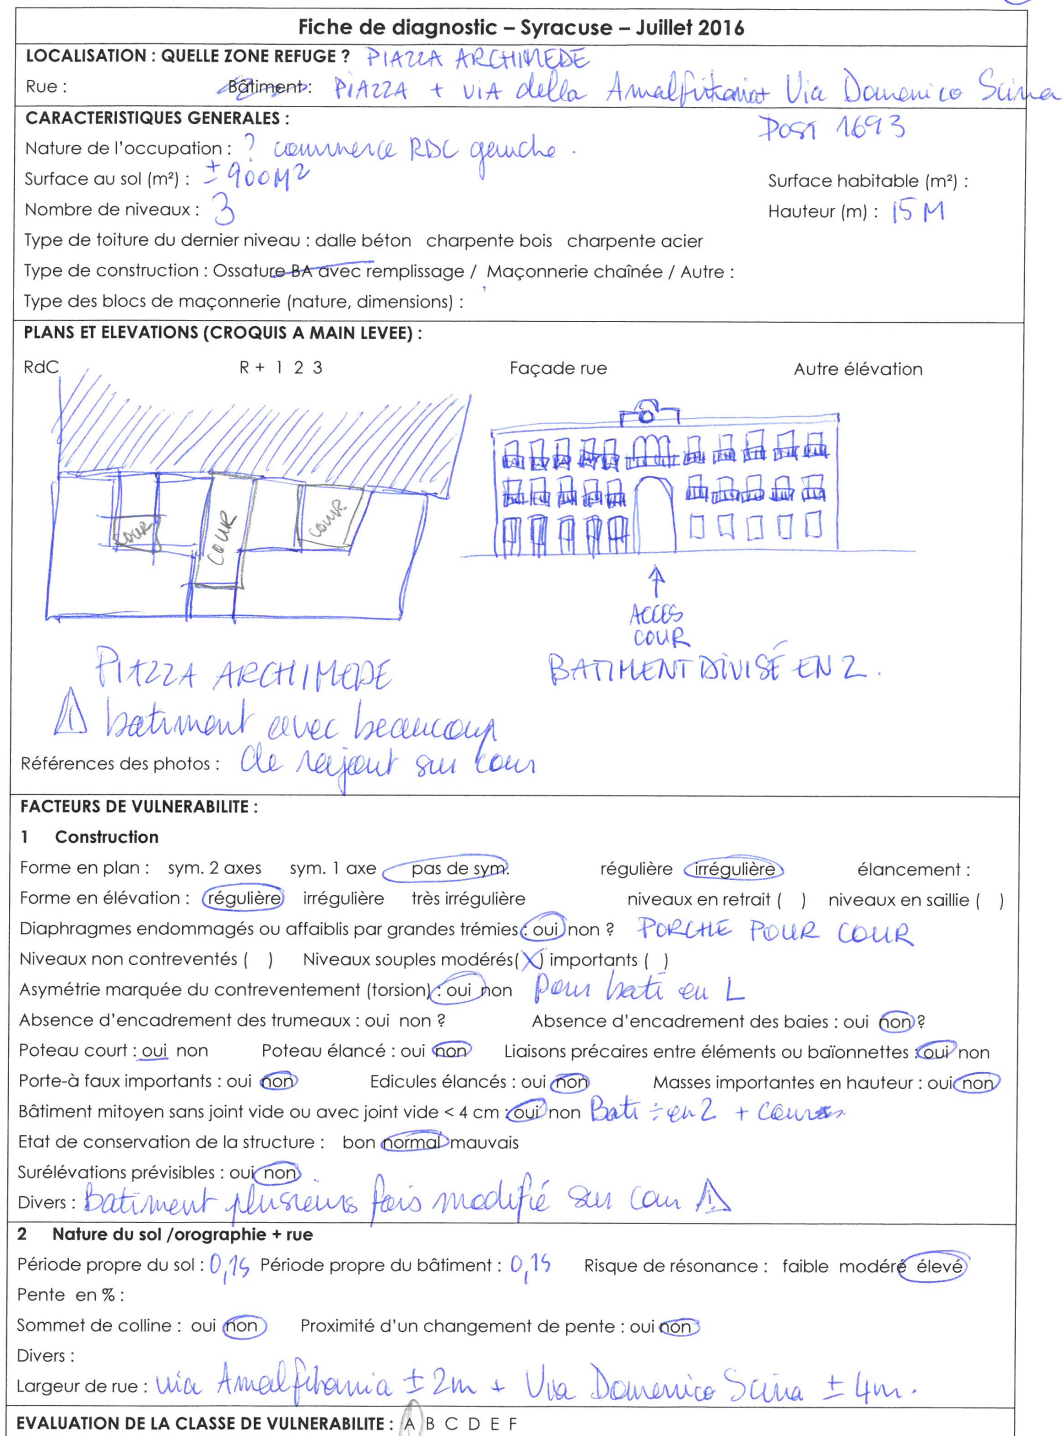 Fiche de diagnostic – Syracuse – Juillet 2016
LOCALISATION : QUELLE ZONE REFUGE ? PIAZZA ARCHIMEDE
Rue : Bâtiment : PIAZZA + VIA della Amalfitania + Via Domenico Scina
CARACTERISTIQUES GENERALES : POST 1693
Nature de l'occupation : ? commerce RDC gauche .
Surface au sol (m²) : ± 900 M2 Surface habitable (m²) :
Nombre de niveaux : 3 Hauteur (m) : 15 M
Type de toiture du dernier niveau : dalle béton charpente bois charpente acier
Type de construction : Ossature BA avec remplissage / Maçonnerie chaînée / Autre :
Type des blocs de maçonnerie (nature, dimensions) :
PLANS ET ELEVATIONS (CROQUIS A MAIN LEVEE) :
RdC R + 1 2 3 Façade rue Autre élévation
COUR COUR COUR
ACCES
COUR
PIAZZA ARCHIMEDE BATIMENT DIVISÉ EN 2 .
⚠ batiment avec beaucoup
Références des photos : de rajout sur cour
FACTEURS DE VULNERABILITE :
1 Construction
Forme en plan : sym. 2 axes sym. 1 axe pas de sym. régulière irrégulière élancement :
Forme en élévation : régulière irrégulière très irrégulière niveaux en retrait ( ) niveaux en saillie ( )
Diaphragmes endommagés ou affaiblis par grandes trémies : oui non ? PORCHE POUR COUR
Niveaux non contreventés ( ) Niveaux souples modérés (X) importants ( )
Asymétrie marquée du contreventement (torsion) : oui non pour bati en L
Absence d'encadrement des trumeaux : oui non ? Absence d'encadrement des baies : oui non ?
Poteau court : oui non Poteau élancé : oui non Liaisons précaires entre éléments ou baïonnettes : oui non
Porte-à faux importants : oui non Edicules élancés : oui non Masses importantes en hauteur : oui non
Bâtiment mitoyen sans joint vide ou avec joint vide < 4 cm : oui non Bati ÷ en 2 + cours
Etat de conservation de la structure : bon normal mauvais
Surélévations prévisibles : oui non
Divers : Batiment plusieurs fois modifié sur cour ⚠
2 Nature du sol /orographie + rue
Période propre du sol : 0,15 Période propre du bâtiment : 0,15 Risque de résonance : faible modéré élevé
Pente en % :
Sommet de colline : oui non Proximité d'un changement de pente : oui non
Divers :
Largeur de rue : via Amalfitania ± 2m + Via Domenico Scina ± 4m .
EVALUATION DE LA CLASSE DE VULNERABILITE : A B C D E F